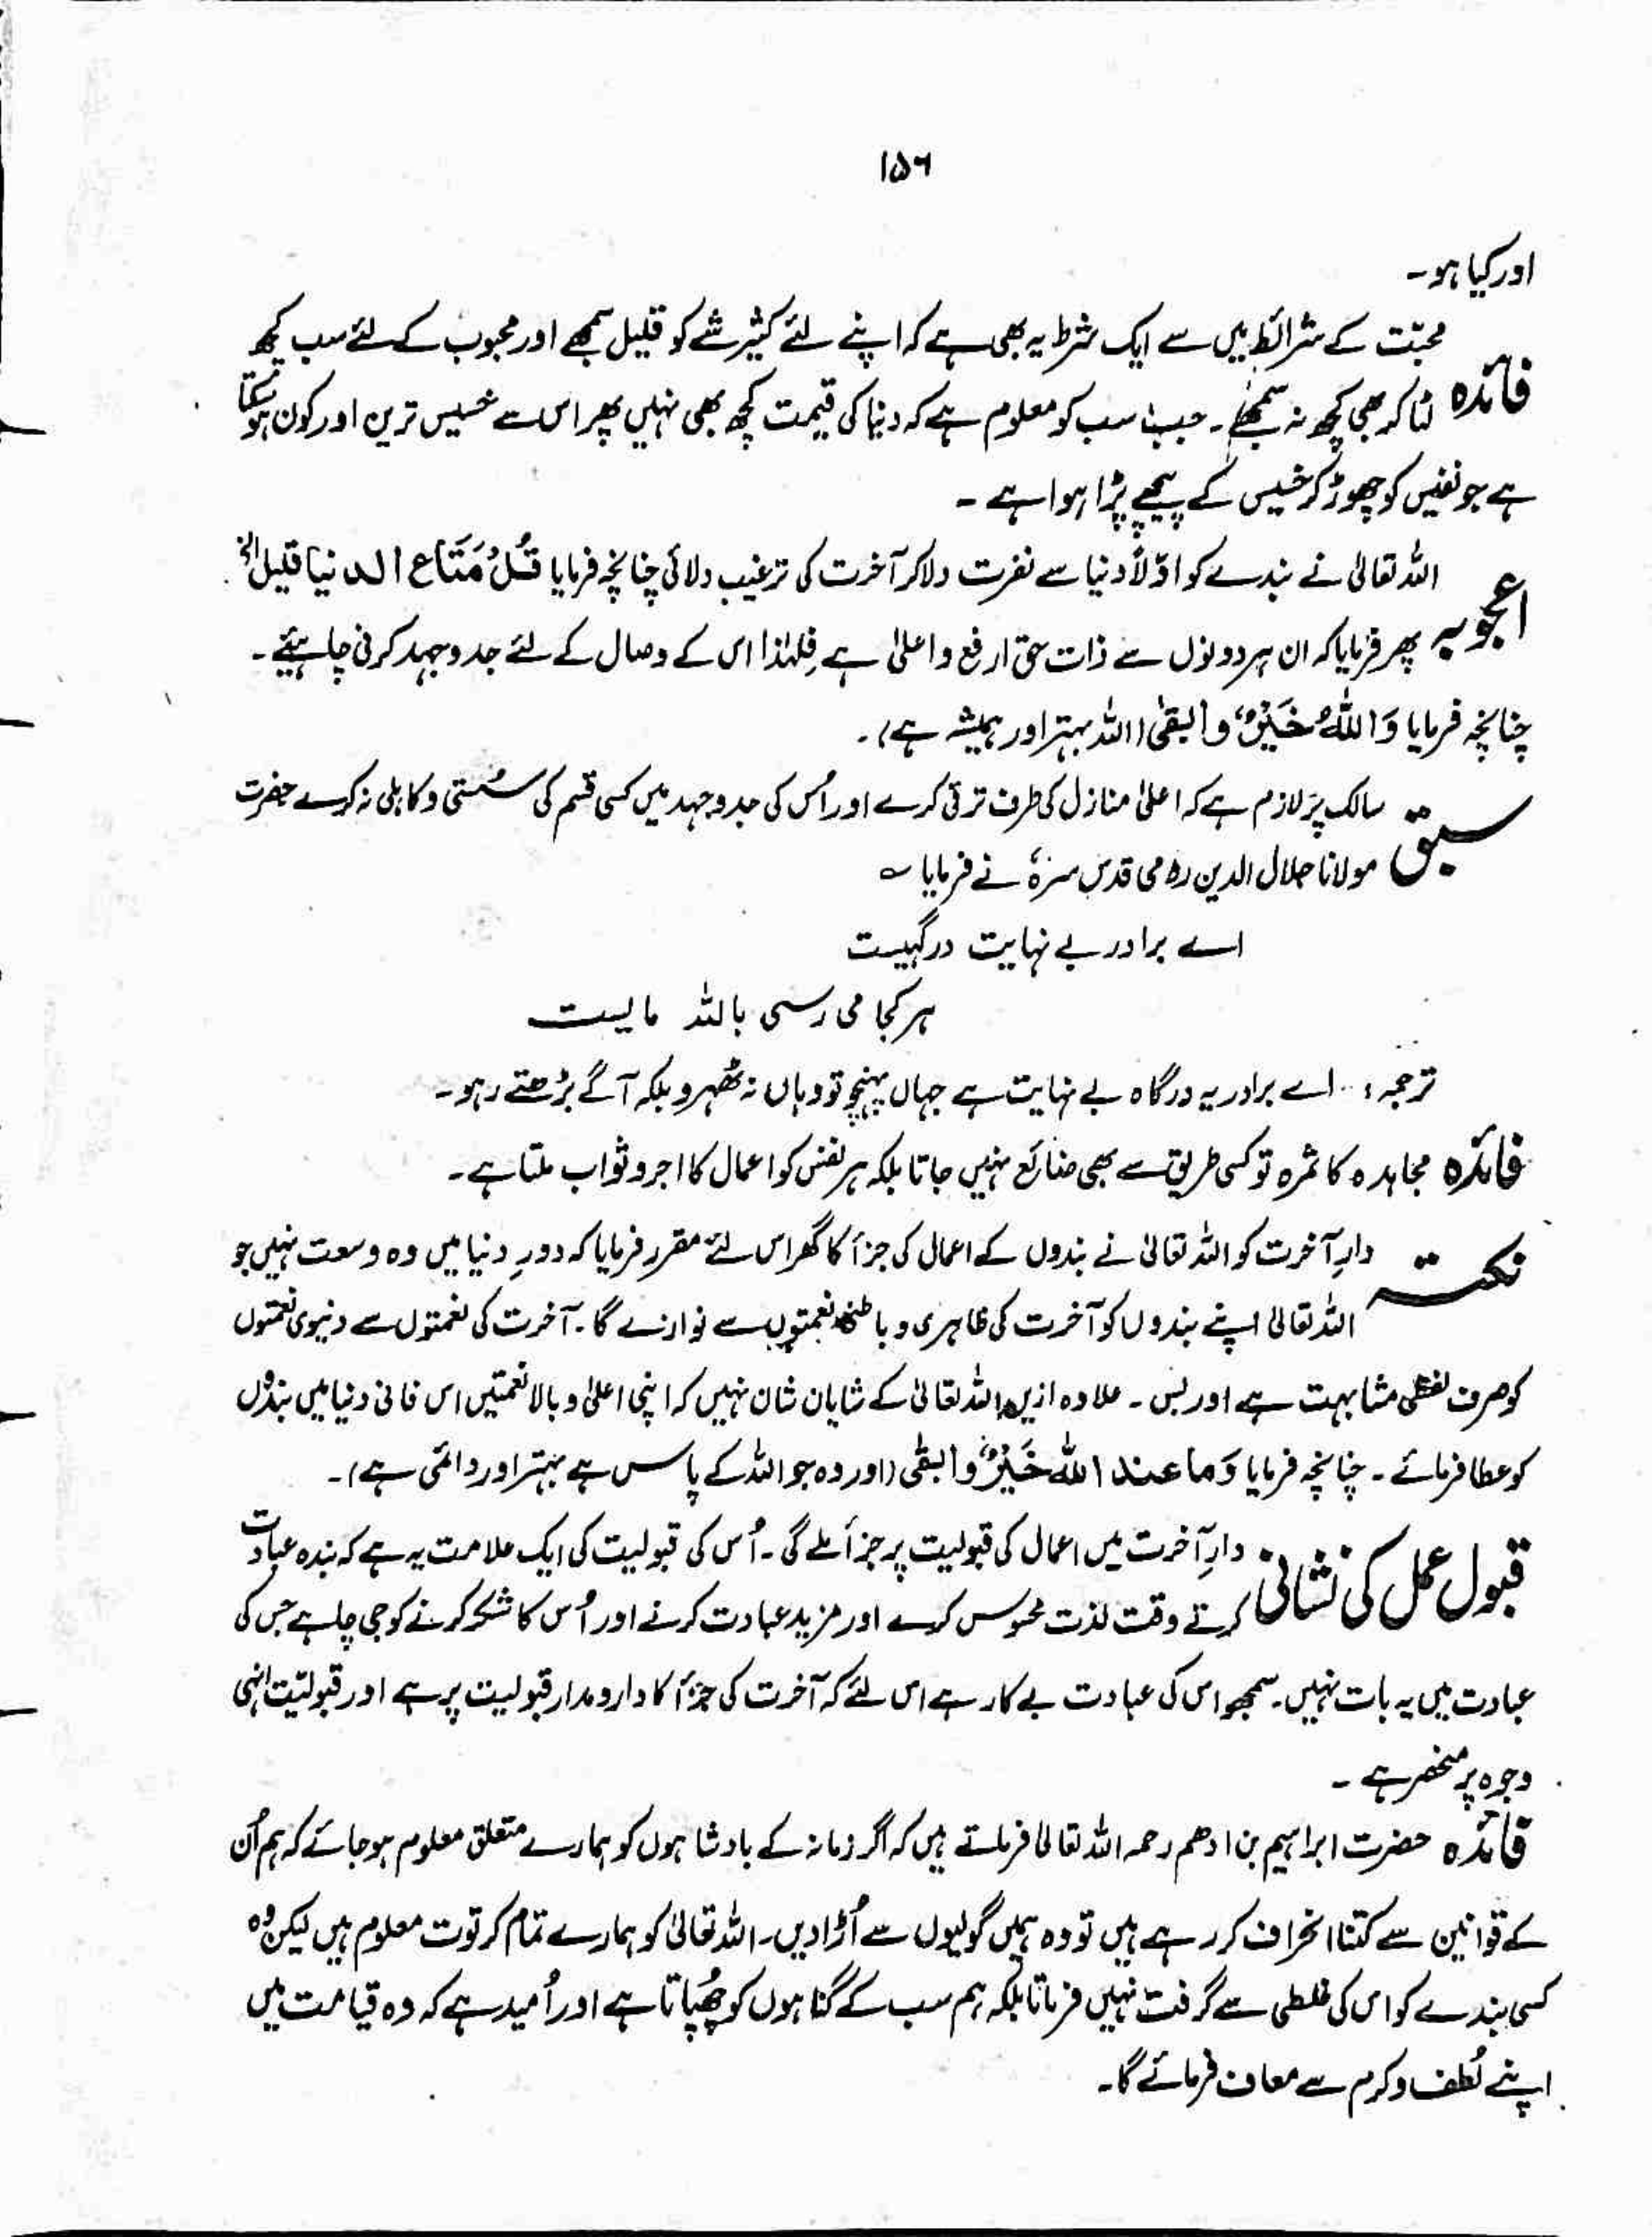 ۱۵۶
اور کیا ہو۔
محبّت کے شرائط میں سے ایک شرط یہ بھی ہے کہ اپنے لئے کثیر شے کو قلیل سمجھے اور محبوب کے لئے سب کچھ
فائدہ لٹا کر بھی کچھ نہ سمجھے۔ جب سب کو معلوم ہے کہ دنیا کی قیمت کچھ بھی نہیں پھر اس سے خسیس ترین اور کون ہوسکتا
ہے جو نفیس کو چھوڑ کر خسیس کے پیچھے پڑا ہوا ہے ۔
اللہ تعالیٰ نے بندے کو اوّلاً دنیا سے نفرت دلا کر آخرت کی ترغیب دلائی چنانچہ فرمایا قُلْ مَتَاع الدنیا قلیل الخ
اعجوبہ پھر فرمایا کہ ان ہر دونوں سے ذات حق ارفع و اعلیٰ ہے فلہٰذا اس کے وصال کے لئے جدوجہد کرنی چاہیئے۔
چنانچہ فرمایا وَاللّٰهُ خَیْرٌ وابقیٰ (اللہ بہتر اور ہمیشہ ہے)۔
سالک پر لازم ہے کہ اعلیٰ منازل کی طرف ترقی کرے اور اُس کی جدوجہد میں کسی قسم کی سُستی و کاہلی نہ کرے حضرت
سبق مولانا جلال الدین رومی قدس سرہٗ نے فرمایا ؎
اے برادر بے نہایت درگہیست
ہر کجا می رسی باللہ مایست
ترجمہ :۔ اے برادر یہ درگاہ بے نہایت ہے جہاں پہنچو تو وہاں نہ ٹھہرو بلکہ آگے بڑھتے رہو۔
فائدہ مجاہدہ کا ثمرہ تو کسی طریق سے بھی ضائع نہیں جاتا بلکہ ہر نفس کو اعمال کا اجر و ثواب ملتا ہے۔
نکتہ دارِ آخرت کو اللہ تعالیٰ نے بندوں کے اعمال کی جزأ کا گھر اس لئے مقرر فرمایا کہ دورِ دنیا میں وہ وسعت نہیں جو
اللہ تعالیٰ اپنے بندوں کو آخرت کی ظاہری و باطنی نعمتوں سے نوازے گا۔ آخرت کی نعمتوں سے دنیوی نعمتوں
کو صرف لفظی مشابہت ہے اور بس۔ علاوہ ازیں اللہ تعالیٰ کے شایان شان نہیں کہ اپنی اعلیٰ و بالا نعمتیں اس فانی دنیا میں بندوں
کو عطا فرمائے۔ چنانچہ فرمایا وَما عند اللّٰہ خَیْرٌ وابقٰی (اور وہ جو اللہ کے پاس ہے بہتر اور دائمی ہے)۔
قبول عمل کی نشانی دارِ آخرت میں اعمال کی قبولیت پر جزأ ملے گی۔ اُس کی قبولیت کی ایک علامت یہ ہے کہ بندہ عبادت
کرتے وقت لذت محسوس کرے اور مزید عبادت کرنے اور اُس کا شکر کرنے کو جی چاہے جس کی
عبادت میں یہ بات نہیں۔ سمجھو اس کی عبادت بے کار ہے اس لئے کہ آخرت کی جزأ کا دارومدار قبولیت پر ہے اور قبولیّت انہی
وجوہ پر منحصر ہے ۔
فائدہ حضرت ابراہیم بن ادھم رحمہ اللہ تعالیٰ فرماتے ہیں کہ اگر زمانہ کے بادشاہوں کو ہمارے متعلق معلوم ہوجائے کہ ہم اُن
کے قوانین سے کتنا انحراف کر رہے ہیں تو وہ ہمیں گولیوں سے اُڑا دیں۔ اللہ تعالیٰ کو ہمارے تمام کرتوت معلوم ہیں لیکن وہ
کسی بندے کو اس کی غلطی سے گرفت نہیں فرماتا بلکہ ہم سب کے گناہوں کو چھُپاتا ہے اور اُمید ہے کہ وہ قیامت میں
اپنے لُطف و کرم سے معاف فرمائے گا۔